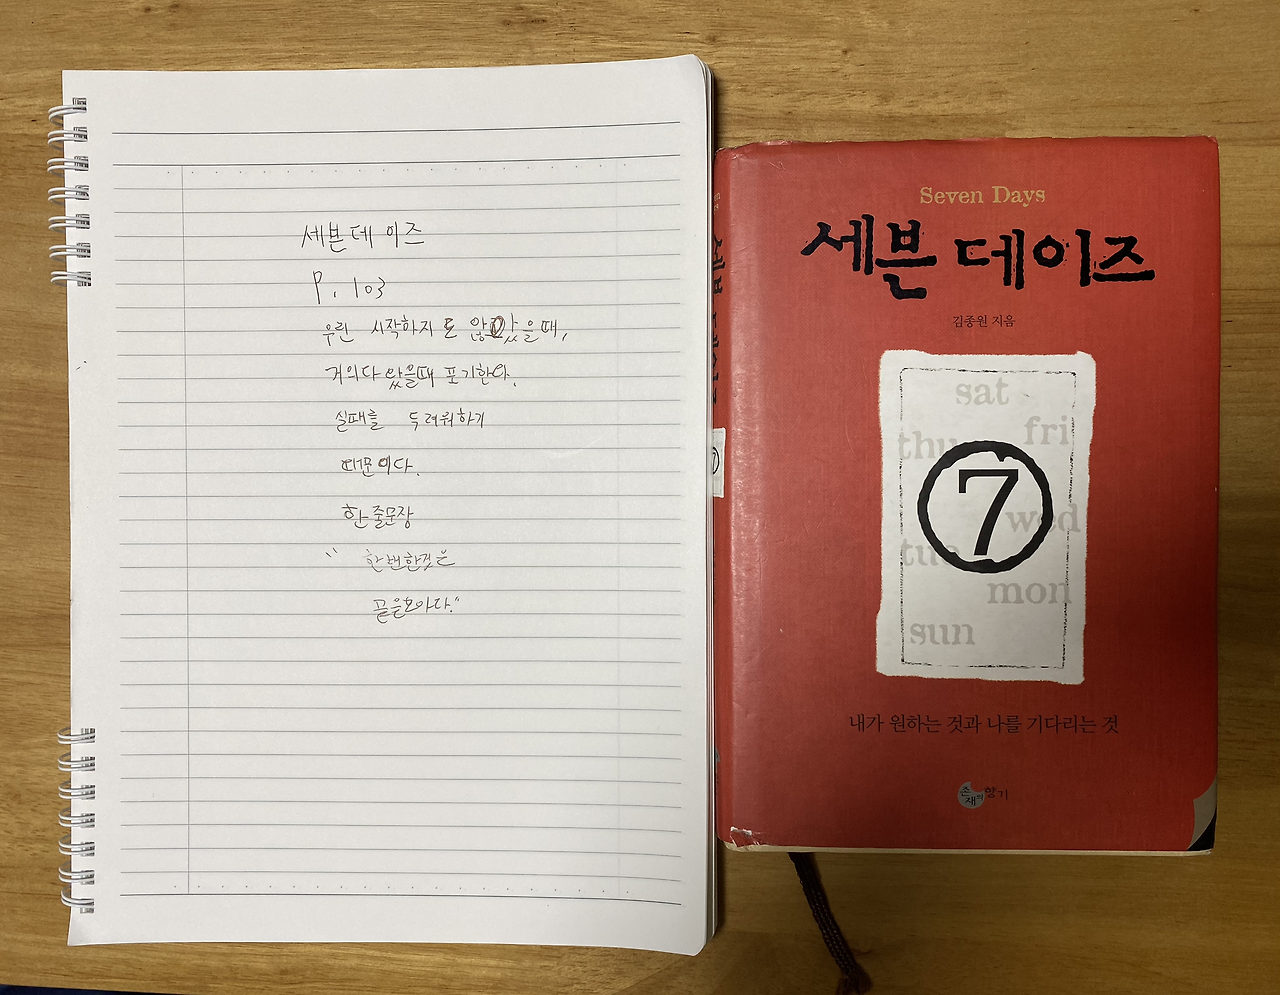 세븐데이즈
P. 103
우린 시작하지도 않았을때,
거의다 왔을때 포기한다.
실패를 두려워하기
때문이다.
한줄문장
"한번한것은
끝을보아다."
Seven Days
세븐 데이즈
김종원 지음
sat
fri
thu
7
wed
tue
mon
sun
내가 원하는 것과 나를 기다리는 것
존재의 향기